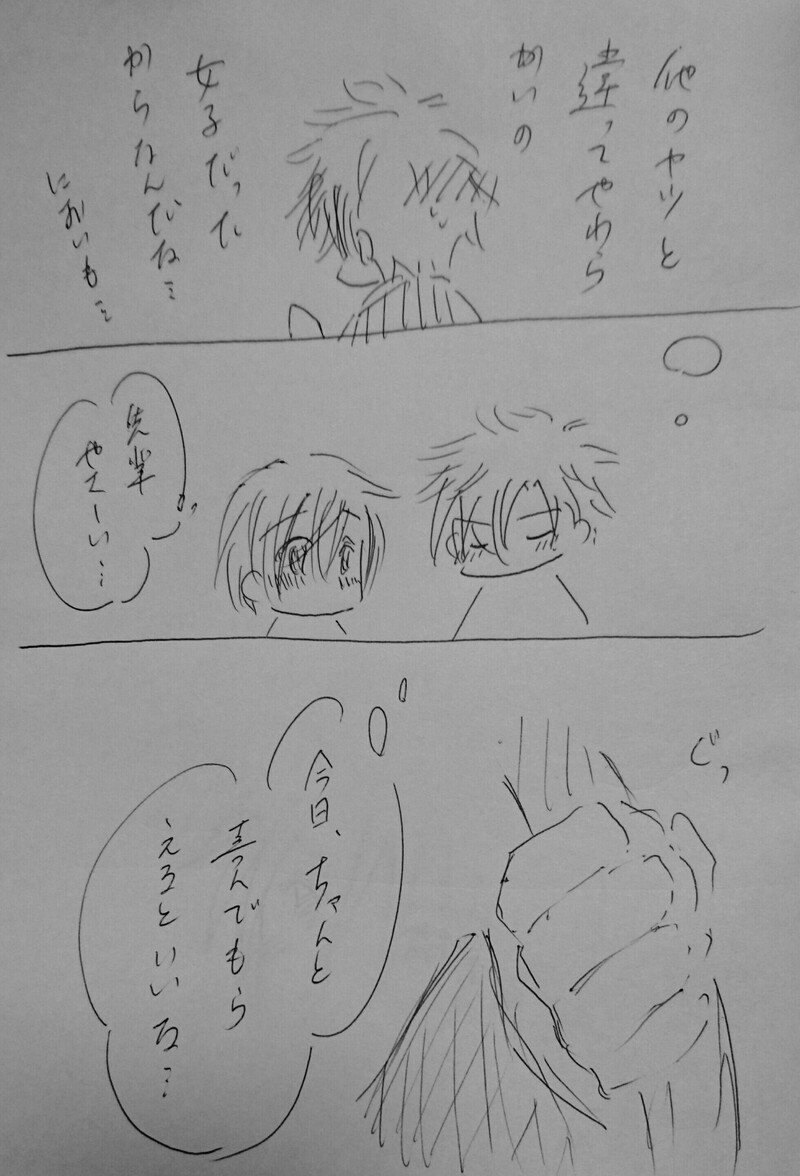 他のヤツと
違ってやわら
かいの
女子だった
からなんだね…
においも…
先輩
やさーしい…
ぐっ
今日、ちゃんと
喜んでもら
えるといいな…